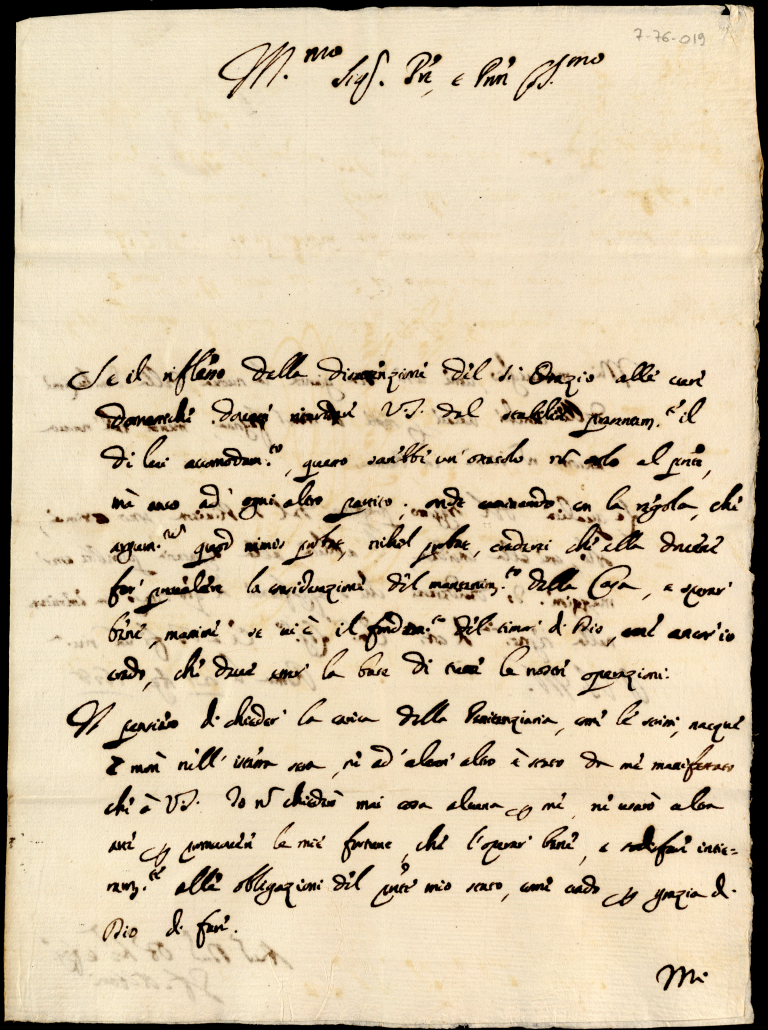 7-76-019
M.mo Sig.r Pñ, e Pñn
Se il riflesso della disattenzione del S.r Orazio alle cure
domestiche dovesse V.S. dal stabilire presentem.te il
di lui accomodam.to, questo sarebbe un' ostacolo nõ solo al pñte,
mà anco ad' ogni altro partito; onde caminando con la regola, che
argum.tum quod nimis probat, nihil probat, crederei che ella dovesse
far prevalere la considerazione del mantenim.to della Casa, e sperar
bene, massime se vi è il fondam.to del timor di Dio, come ancor io
credo, che deve esser la base di tutte le nostre operazioni.
Il pensiero di chieder la carica della Penitenziaria, come le scrissi, nacque
e morì nell' istessa sera, nè ad' alcun' altro è stato da me manifestato
che à V.S. Io nõ chiederò mai cosa alcuna p me, nè userò altra
arte p promuovere le mie fortune, che l'operar bene, e sodisfare intie-
ram.te alle obligazioni del pñte mio stato, come credo p grazia di
Dio di fare.
Mi